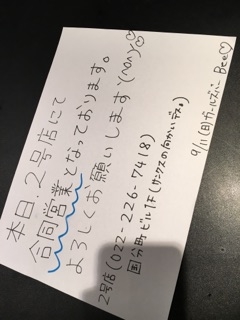 本日、2号店にて
合同営業となっております。
よろしくお願いします(^o^)♡♡
2号店(022-226-7418)
国分町ビル1F(サンクスの向かいデス。)
9/11(日)ガールズバー Bee♡